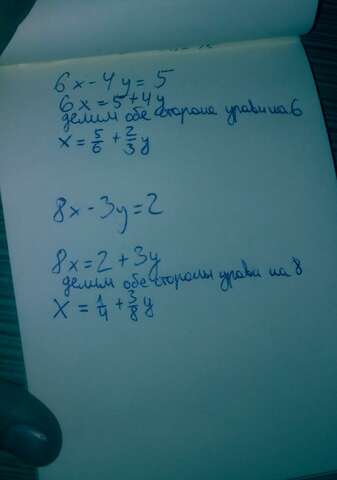 6x - 4y = 5
6x = 5 + 4y
делим обе сторона уравн на 6
x = 5/6 + 2/3 y
8x - 3y = 2
8x = 2 + 3y
делим обе стороны уравн на 8
x = 1/4 + 3/8 y